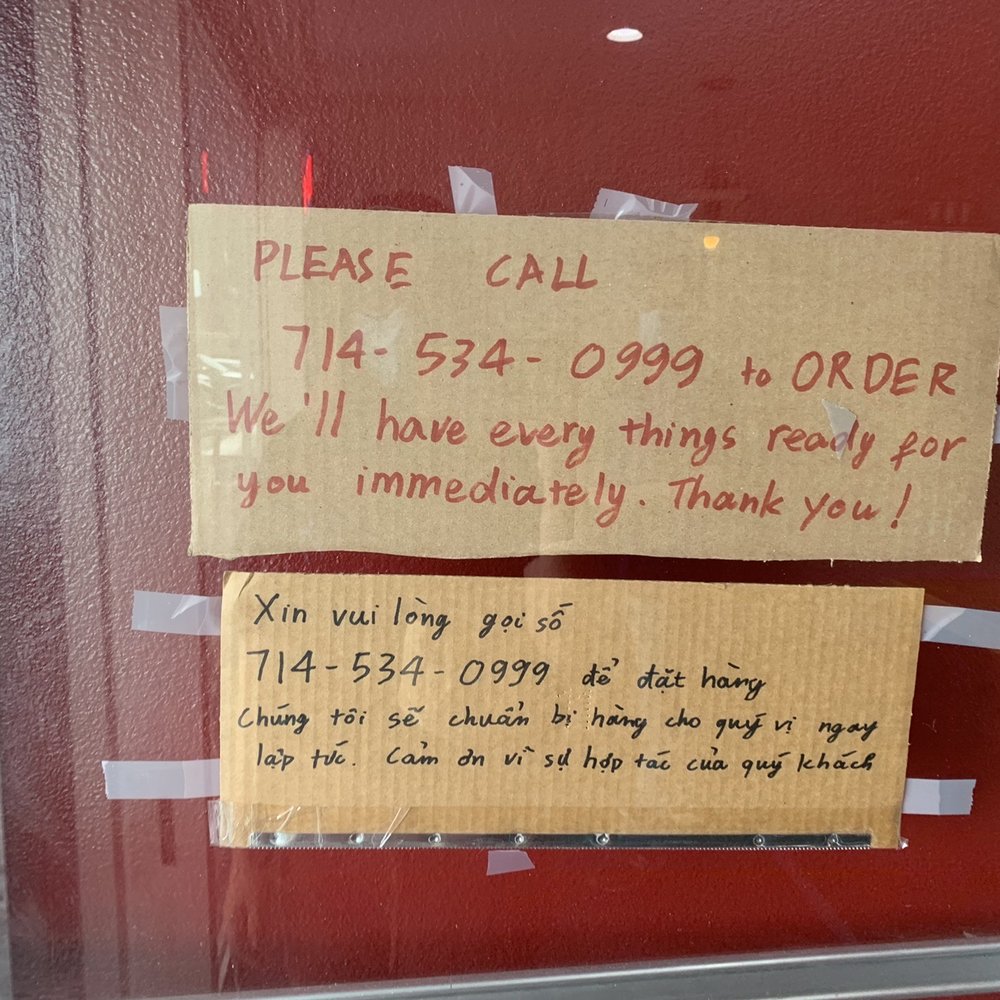 PLEASE CALL
714-534-0999 to ORDER
We'll have every things ready for
you immediately. Thank you!
Xin vui lòng gọi số
714-534-0999 để đặt hàng
Chúng tôi sẽ chuẩn bị hàng cho quý vị ngay
lập tức. Cảm ơn vì sự hợp tác của quý khách